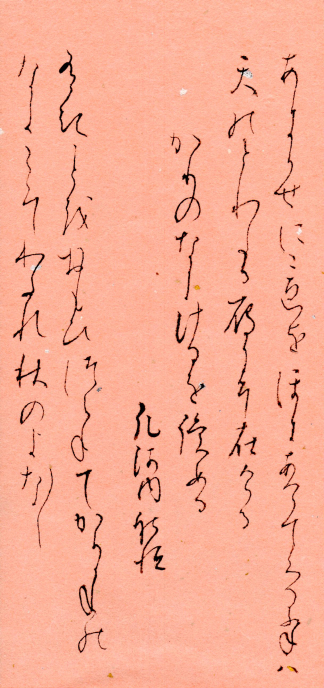 あきかせにこゑをほにあけてくるふねハ
天のとわたる雁にそ在ける
かりのなきけるを読める
凡河内躬恒
うきことをおもひつらねてかりかねの
なきこそわたれ秋のよな〱